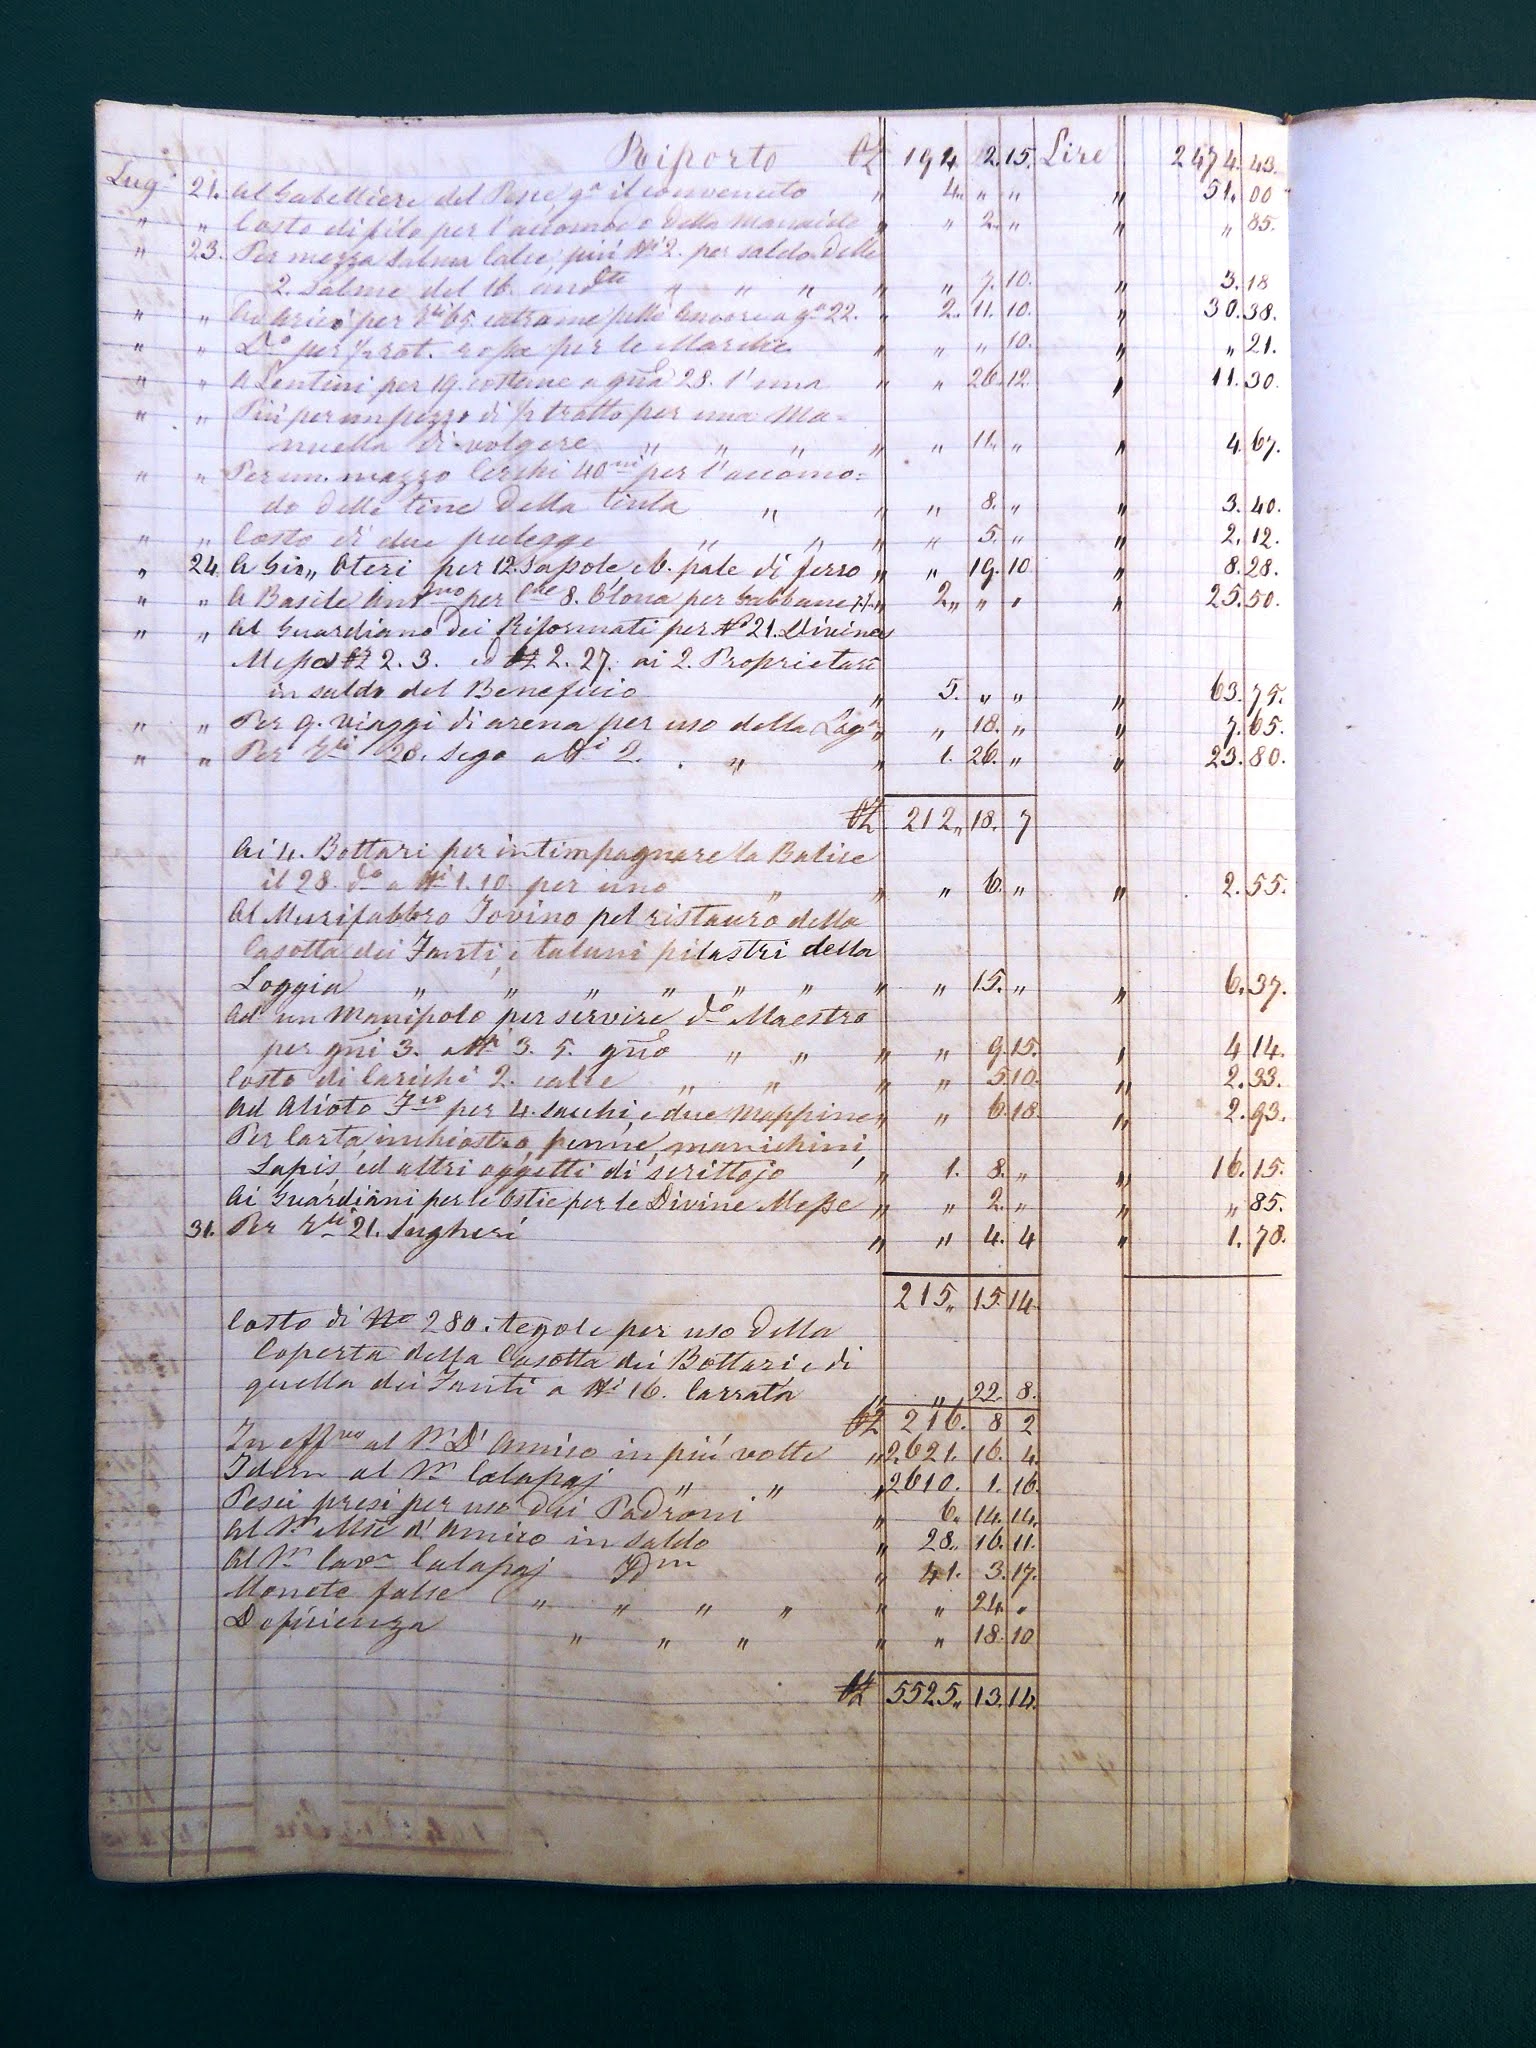 Riporto 194 2. 15. Lire 2474. 43.
Lug.º 21. Al Gabelliere del Pesce gª il convenuto " 4. " " " 51. 00
" " Costo di filo per l'accomodo della " " 2. " " " 85.
" 23. Per mezza Salma Calce, più 2. per saldo delle
2. Salme del 16. " " " " " 7. 10. " 3. 18
" " per 65. catrame gª 22. " 2. 11. 10. " 30. 38.
" " Dº per ½ rot. per le " " " 10. " " 21.
" " A Lentini per 19. cottane a 28. l'una " " 26. 12. " 11. 30.
" " Più per un pezzo di ½ tratto per una Ma=
nuella di volgere " " " " " 11. " " 4. 67.
" " Per un mazzo Cerchi 40 per l'accomo=
do delle tine della tinta " " " 8. " " 3. 40.
" " Costo di due pulegge " " " " 5. " " 2. 12.
" 24. A Gio" Oteri per 12. Sapole, e 6. pale di ferro " " 19. 10 " 8. 28.
" " A Basile per 8. Olona per Gabbane " 2. " " " 25. 50.
" " Al Guardiano dei Riformati per Nº 21. Divine
Messe 2. 3. ed 2. 27. ai 2. Proprietari
in saldo del Beneficio " 5. " " " 63. 75.
" " Per 9. viaggi di arena per uso della " " 18. " " 7. 65.
" " Per 28. sego a 2. " " 1. 26. " " 23. 80.
212. 18. 7
Ai 4. Bottari per intimpagnare la Balise
il 28. dº a 1. 10. per uno " " " 6. " " 2. 55.
Al Murifabbro Iovino pel ristauro della
Casotta dei Fanti, e taluni pilastri della
Loggia " " " " " " " " 15. " " 6. 37.
Ad un Manipolo per servire dº Maestro
per gni 3. a 3. 5. gno " " " " 9. 15. " 4. 14.
Costo di Carichi 2. calce " " " " 5. 10. " 2. 33.
Ad Alioto per 4. sacchi, e due Mappine " " 6. 18. " 2. 93.
Per Carta, inchiostro, penne, manichini,
Lapis, ed altri oggetti di scrittojo " 1. 8. " " 16. 15.
Ai Guardiani per le Ostie per le Divine Messe " " 2. " " " 85.
31. Per 21. sugheri " " 4. 4 " 1. 78.
215. 15. 14.
Costo di Nº 280. tegole per uso della
Coperta della Casotta dei Bottari, e di
quella dei Fanti a 16. Carrata " " 22. 8.
216. 8 2
In al D'Amico in più volte " 2621. 16. 4.
Idem al Calapaj " " " 2610. 1. 16.
Pesci presi per uso dei Padroni " 6. 14. 14.
Al d'Amico in saldo " 28. 16. 11.
Al Calapaj Idm " 41. 3. 17.
Monete false " " " " " " 24. "
Deficienza " " " " " 18. 10
5525. 13. 14.